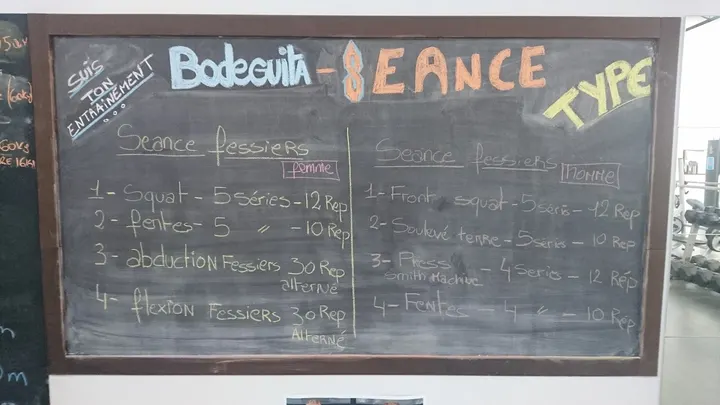 SUIS
TON
ENTRAÎNEMENT
Bodeguita - SEANCE
TYPE
Seance fessiers
femme
1- Squat - 5 séries - 12 Rep
2- fentes - 5 " - 10 Rep
3- abduction Fessiers 30 Rep
alterné
4- flexion Fessiers 30 Rep
Alterné
Seance fessiers
HOMME
1- Front squat - 5 séries - 12 Rep
2- Soulevé terre - 5 séries - 10 Rep
3- Press
Smith Machine - 4 series - 12 Rép
4- Fentes - 4 " - 10 Rep